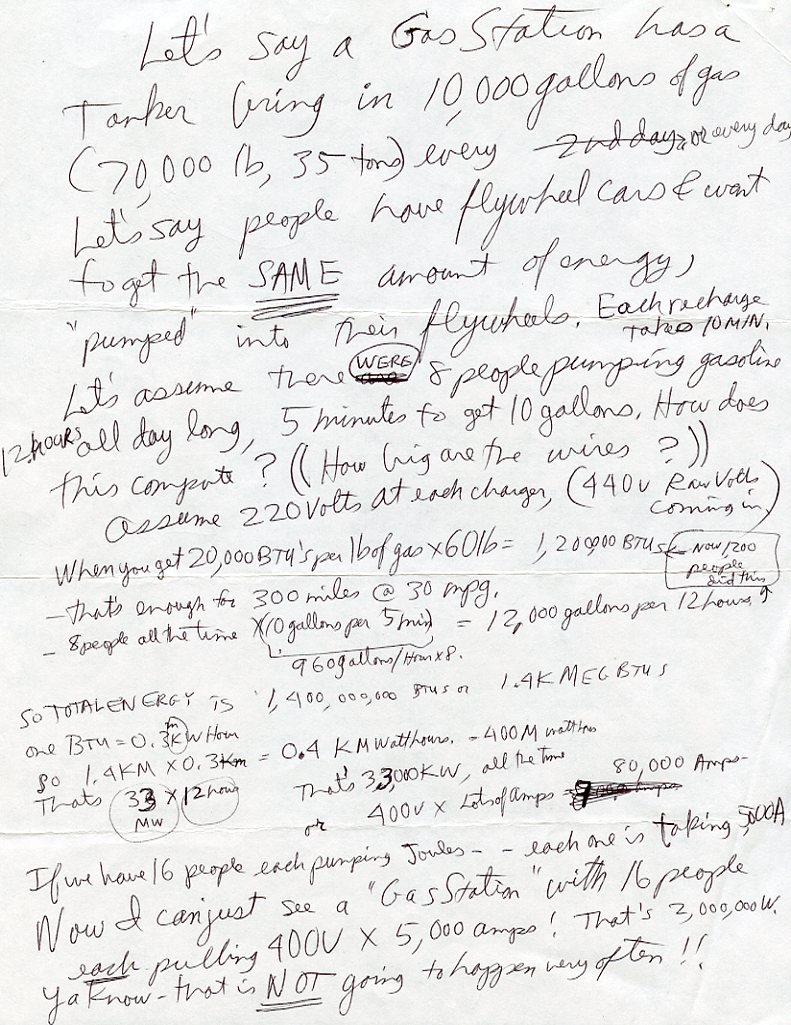 Let's say a Gas Station has a
Tanker bring in 10,000 gallons of gas
(70,000 lb, 35 tons) every 2nd day, or every day
Let's say people have flywheel cars & want
to get the SAME amount of energy,
"pumped" into their flywheels. Each recharge
takes 10 MIN.
Let's assume there WERE 8 people pumping gasoline
12 hours all day long, 5 minutes to get 10 gallons. How does
this compute? ((How big are the wires?))
Assume 220 Volts at each charger, (440v Raw Volts
coming in)
When you get 20,000 BTU's per lb of gas x 60 lb = 1,200,000 BTUs ← Now 1,200
people
did this
- that's enough for 300 miles @ 30 mpg.
- 8 people all the time x (10 gallons per 5 min) = 12,000 gallons per 12 hours
960 gallons/Hour x 8.
SO TOTAL ENERGY IS 1,400,000,000 BTUs or 1.4K MEG BTUs
one BTU = 0.3 m W Hour
so 1.4KM x 0.3 = 0.4 KM Watthours. = 400M watt hrs
Thats 33 MW x 12 hours
That's 33,000 KW, all the time
or 400V x Lots of Amps = 80,000 Amps-
If we have 16 people each pumping Joules - - each one is taking 5000A
Now I can just see a "Gas Station" with 16 people
each pulling 400V x 5,000 amps! That's 2,000,000W.
Ya Know - that is NOT going to happen very often!!